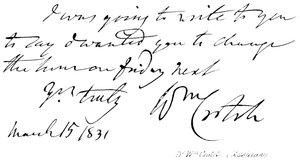 I was going to write to you
to say I wanted you to change
the hour on friday next
Yrs truly Wm Crotch
March 15 1831